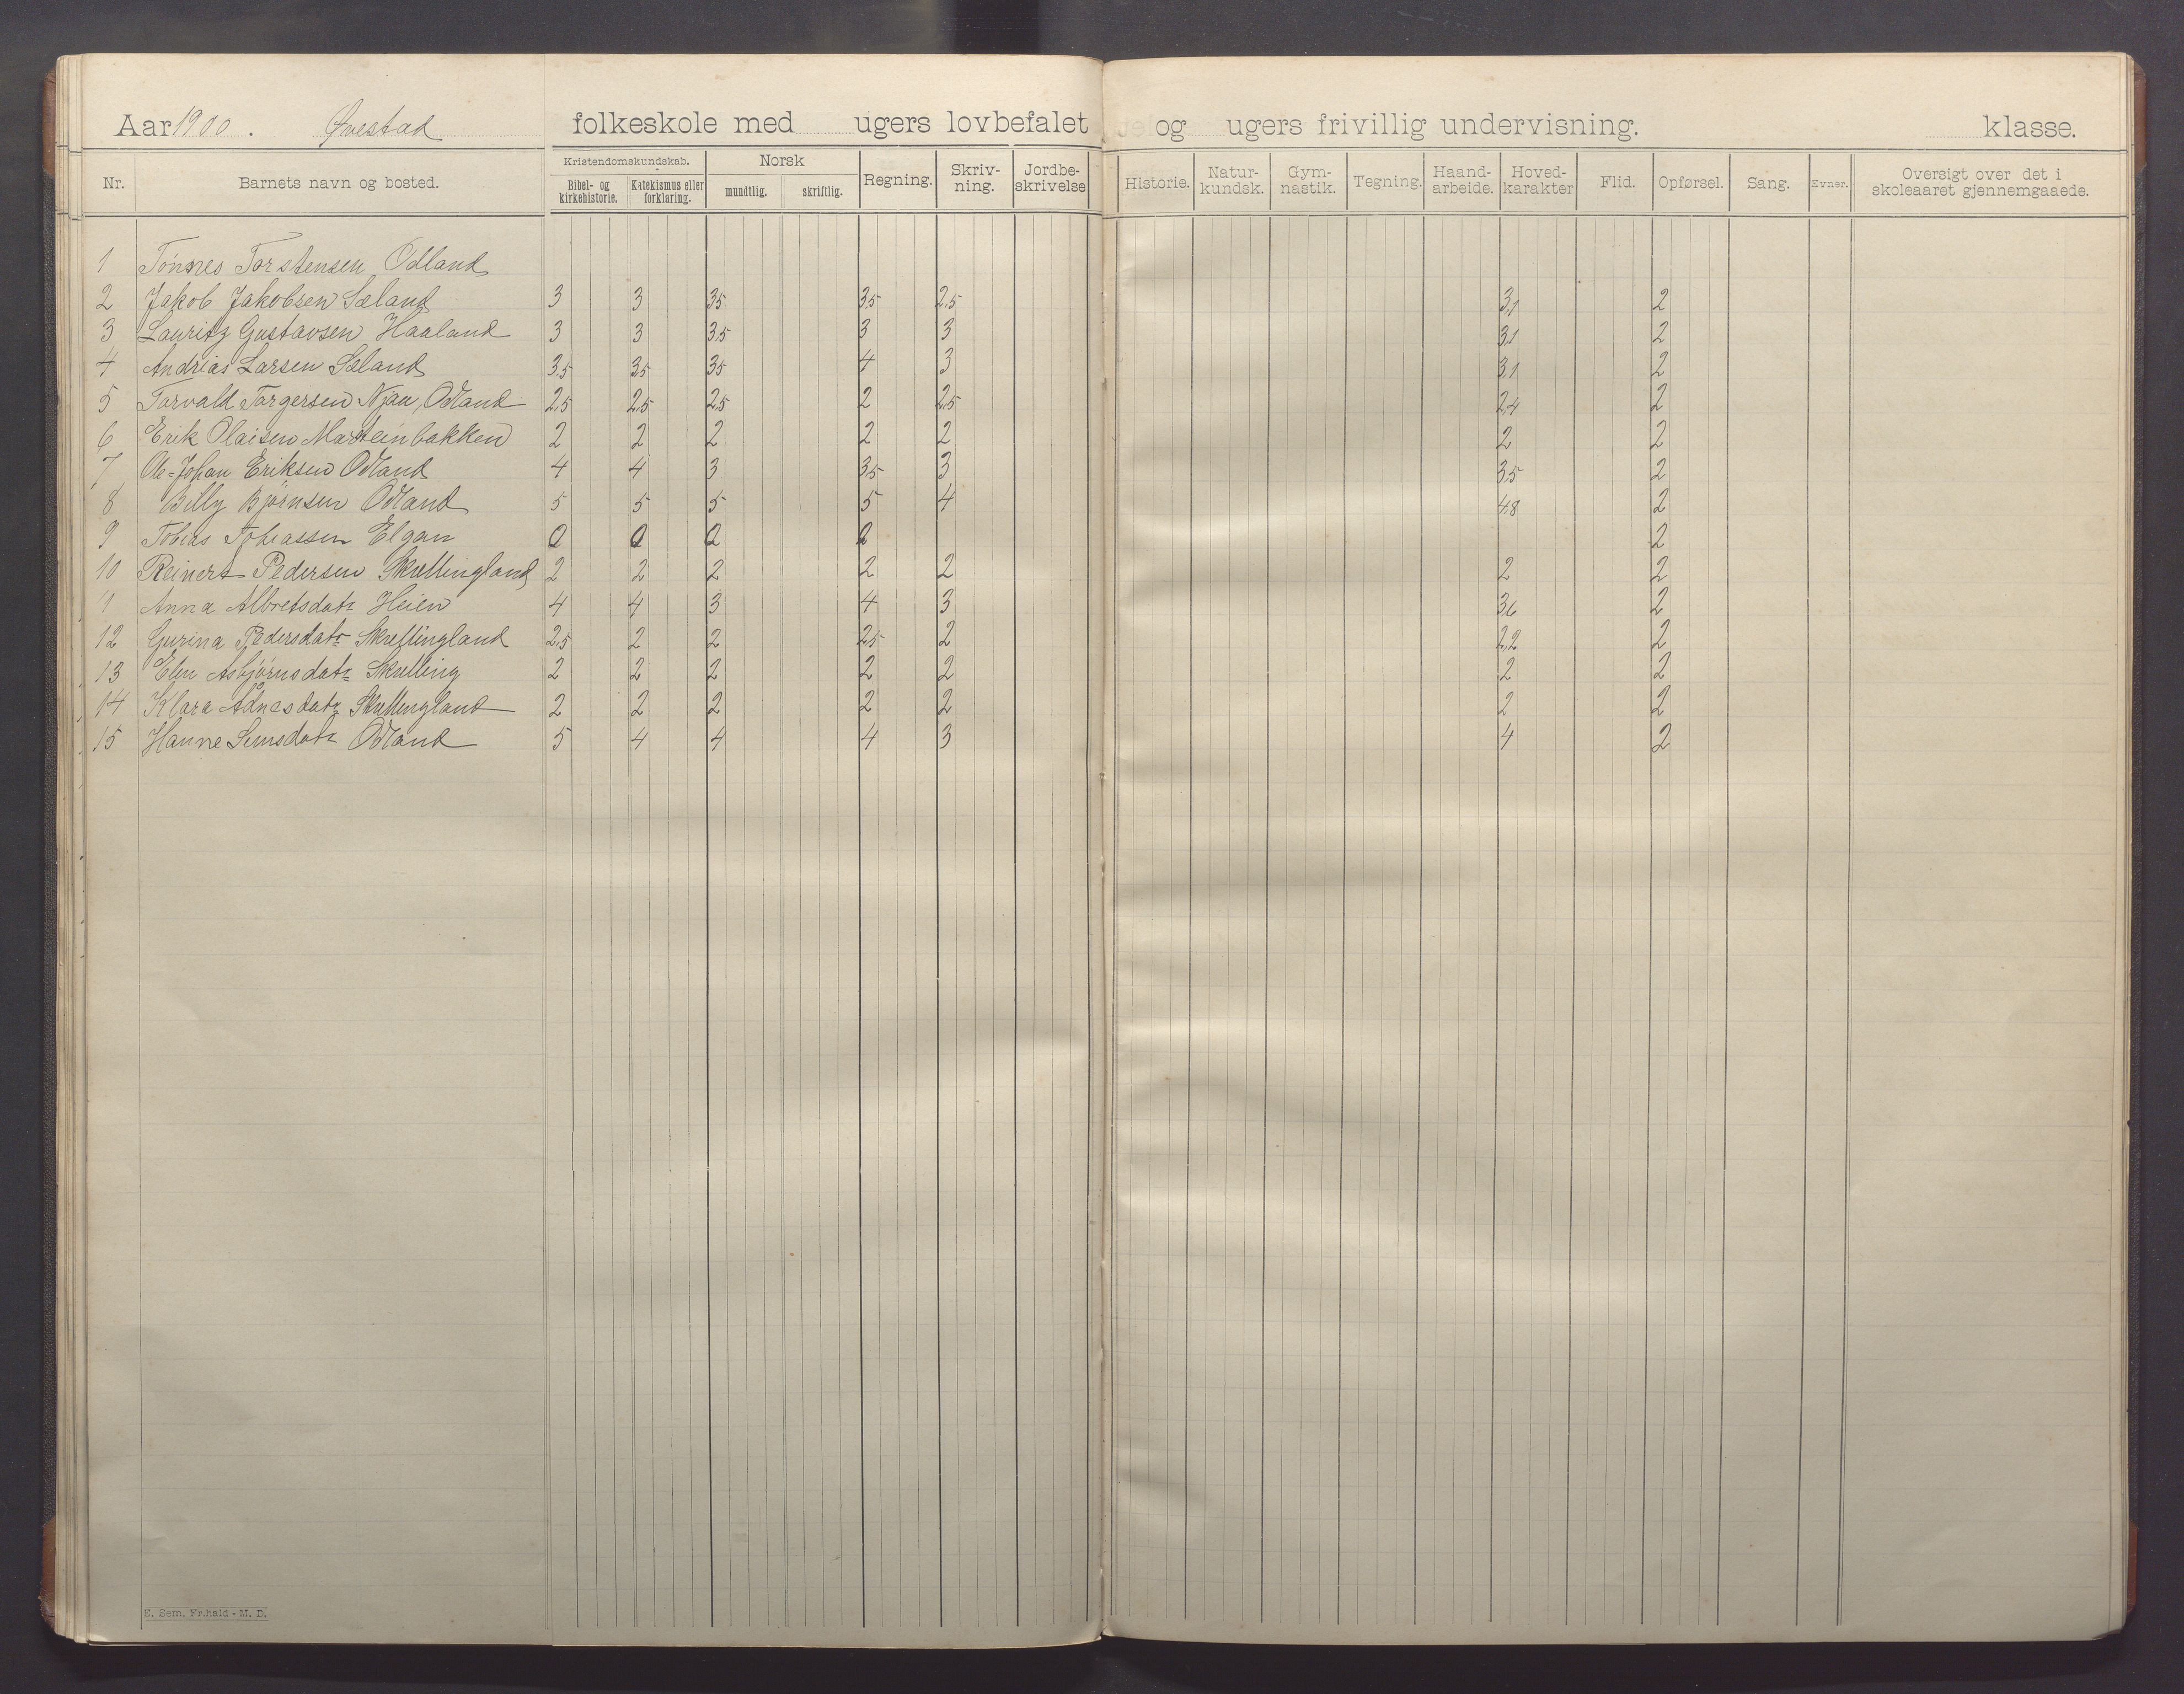 Aar 1900. Øvestad folkeskole med ugers lovbefalet og ugers frivillig undervisning. klasse.
Nr. Barnets navn og bosted. Kristendomskundskab. Bibel- og kirkehistorie. Katekismus eller forklaring. Norsk mundtlig. skriftlig. Regning. Skriv-ning. Jordbe-skrivelse Historie. Natur-kundsk. Gym-nastik. Tegning. Haand-arbeide. Hoved-karakter Flid. Opførsel. Sang. Evner. Oversigt over det i skoleaaret gjennemgaaede.
1 Tönnes Torstensen Odland
2 Jakob Jakobsen Sæland 3 3 3.5 3.5 2.5 3,1 2
3 Lauritz Gustavsen Haaland 3 3 3.5 3 3 3,1 2
4 Andrias Larsen Sæland 3.5 3.5 3.5 4 3 3,1 2
5 Torvald Torgersen Njaa, Odland 2,5 2,5 2,5 2 2,5 2,4 2
6 Erik Olaisen Marsteinbakken 2 2 2 2 2 2 2
7 Ole-Johan Eriksen Odland 4 4 3 3,5 3 3,5 2
8 Billy Bjørnsen Odland 5 5 5 5 4 4,8 2
9 Tobias Tobiassen Elgan 2
10 Reinert Pedersen Skrettingland 2 2 2 2 2 2 2
11 Anna Albretsdatr Heien 4 4 3 4 3 3,6 2
12 Gurina Pedersdatr Skrettingland 2,5 2 2 2,5 2 2,2 2
13 Elen Asbjørnsdatr Skretting 2 2 2 2 2 2 2
14 Klara Ådnesdatr Skrettingland 2 2 2 2 2 2 2
15 Hanne datr Odland 5 4 4 4 3 4 2
E. Sem. Fr.hald - M. D.